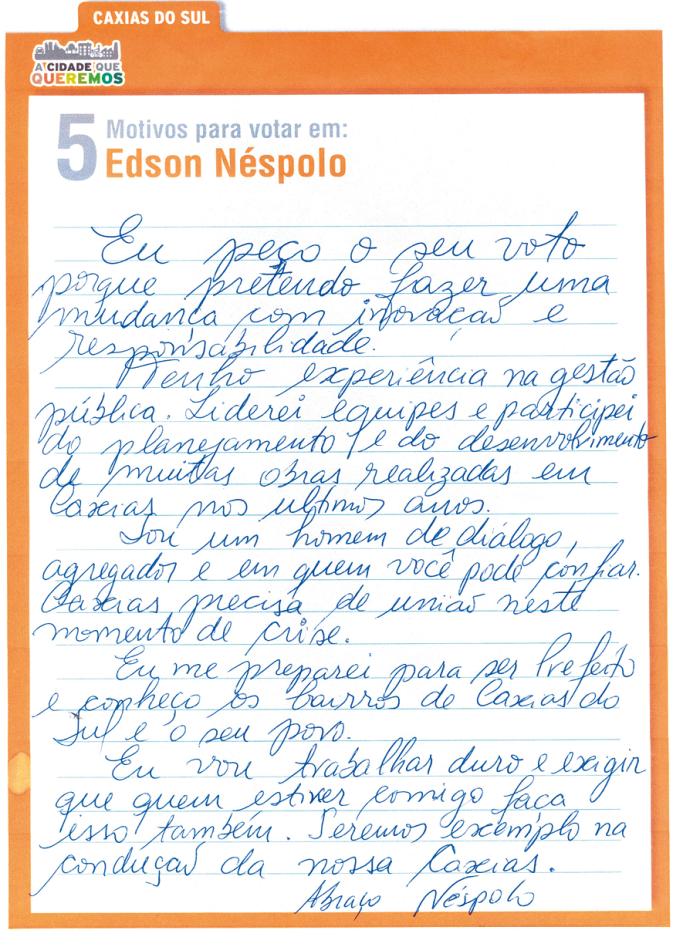 CAXIAS DO SUL
A CIDADE QUE
QUEREMOS
5 Motivos para votar em:
Edson Néspolo
Eu peço o seu voto
porque pretendo fazer uma
mudança com inovação e
responsabilidade.
Tenho experiência na gestão
pública. Liderei equipes e participei
do planejamento e do desenvolvimento
de muitas obras realizadas em
Caxias nos ultimos anos.
Sou um homem de diálogo,
agregador e em quem você pode confiar.
Caxias precisa de união neste
momento de crise.
Eu me preparei para ser Prefeito
e conheço os bairros de Caxias do
Sul e o seu povo.
Eu vou trabalhar duro e exigir
que quem estiver comigo faça
isso também. Seremos exemplo na
condução da nossa Caxias.
Abraço Néspolo